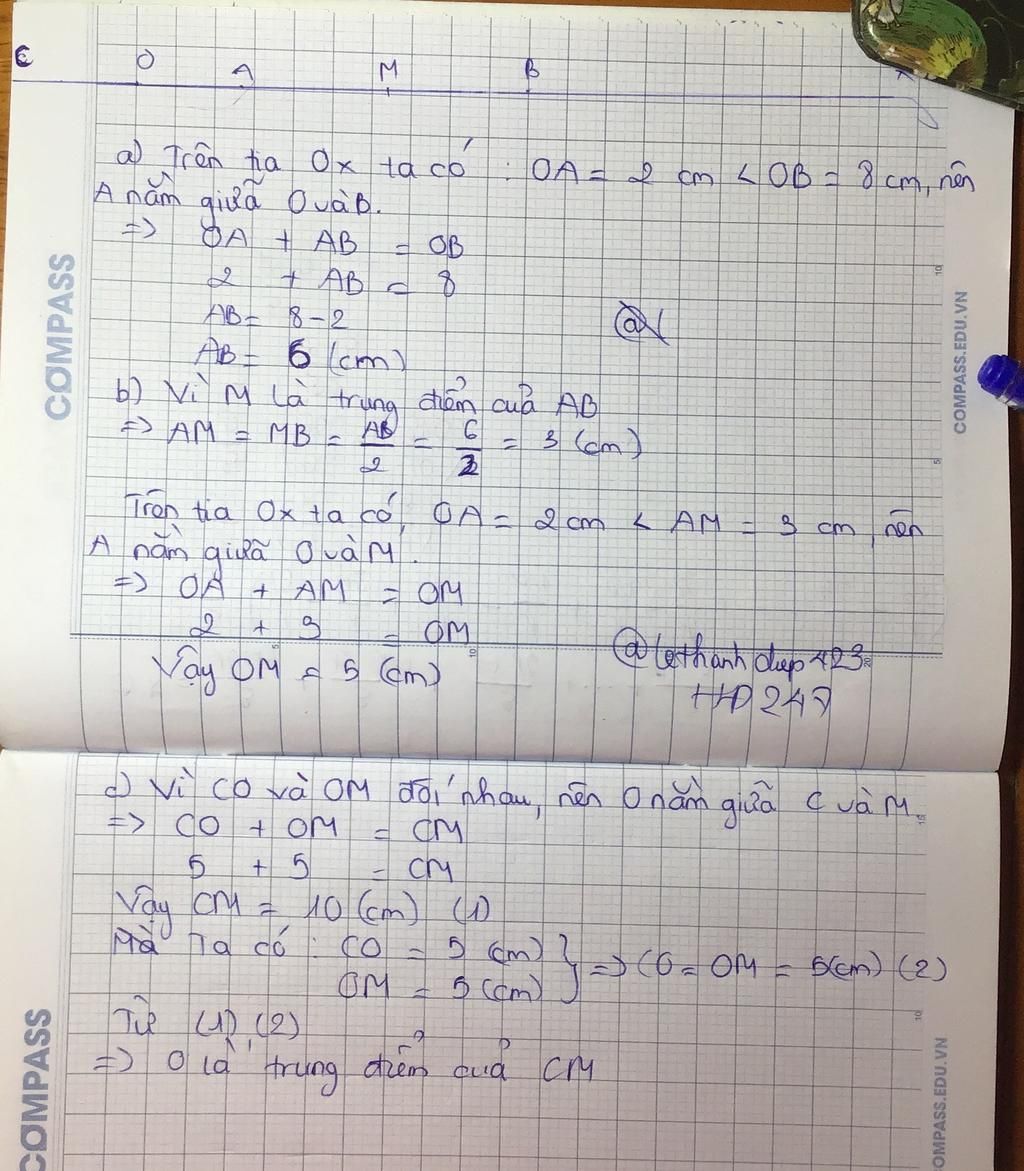 C O A M B x
a) Trên tia Ox ta có : OA = 2 cm < OB = 8 cm, nên
A nằm giữa O và B.
=> OA + AB = OB
2 + AB = 8
AB = 8 - 2
AB = 6 (cm)
b) Vì M là trung điểm của AB
=> AM = MB = AB/2 = 6/2 = 3 (cm)
Trên tia Ox ta có, OA = 2 cm < AM = 3 cm, nên
A nằm giữa O và M.
=> OA + AM = OM
2 + 3 = OM
Vậy OM = 5 (cm)
@lethanhdup423
HD247
c) Vì CO và OM đối nhau, nên O nằm giữa C và M.
=> CO + OM = CM
5 + 5 = CM
Vậy CM = 10 (cm) (1)
Mà Ta có : CO = 5 (cm) } => CO = OM = 5(cm) (2)
OM = 5 (cm)
Từ (1), (2)
=> O là trung điểm của CM
COMPASS
COMPASS.EDU.VN
COMPASS
COMPASS.EDU.VN